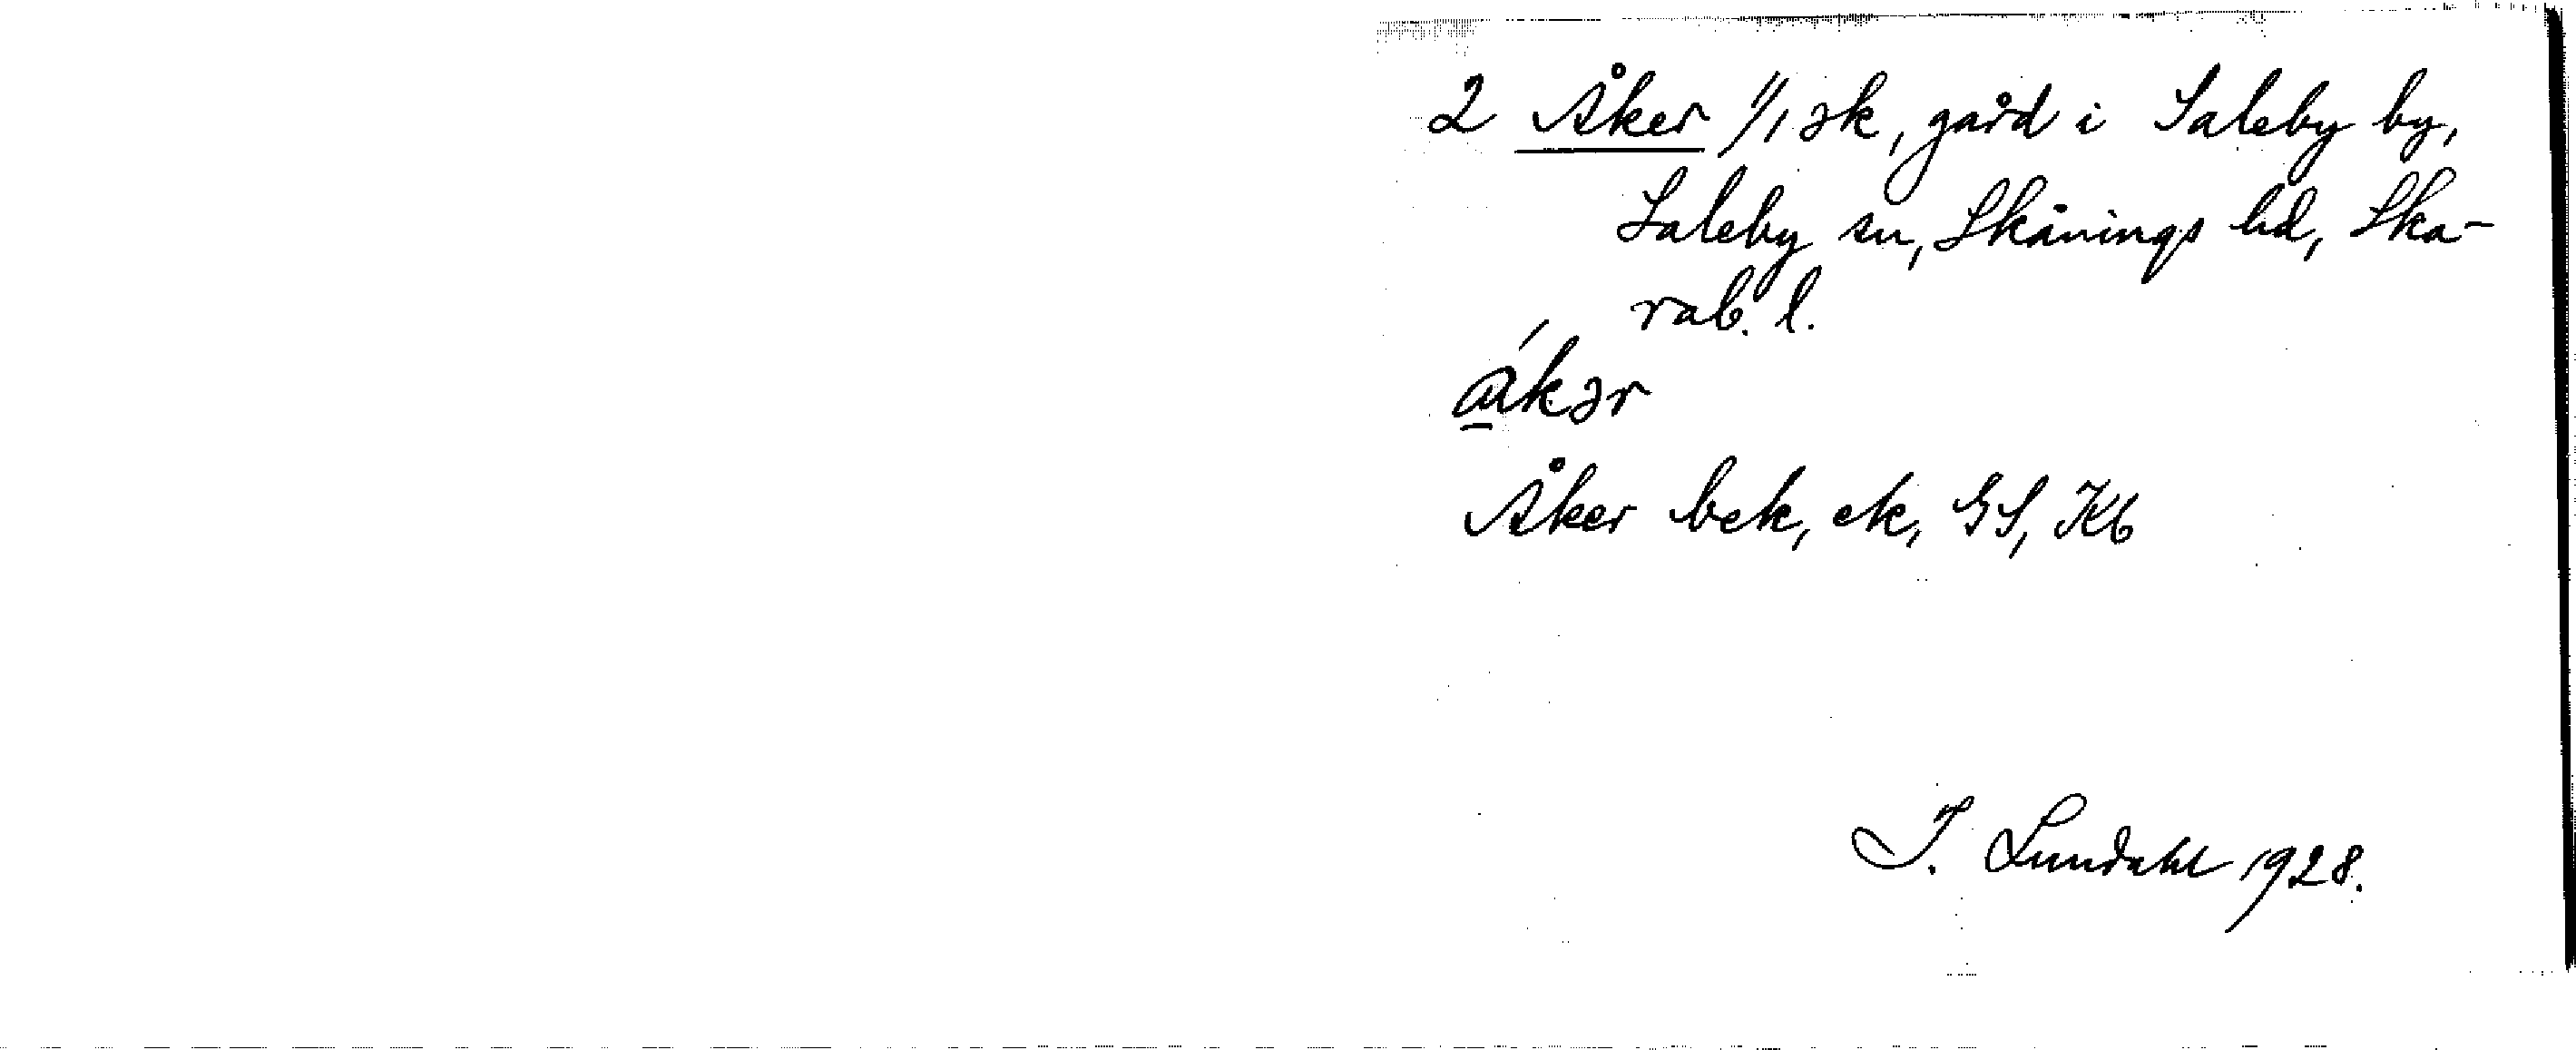 2 Åker 1/1 sk, gård i Saleby by,
Saleby sn, Skånings hd, Ska-
rab. l.
åkər
Åker bek, ek, GS, Kb
I. Lundahl 1928.